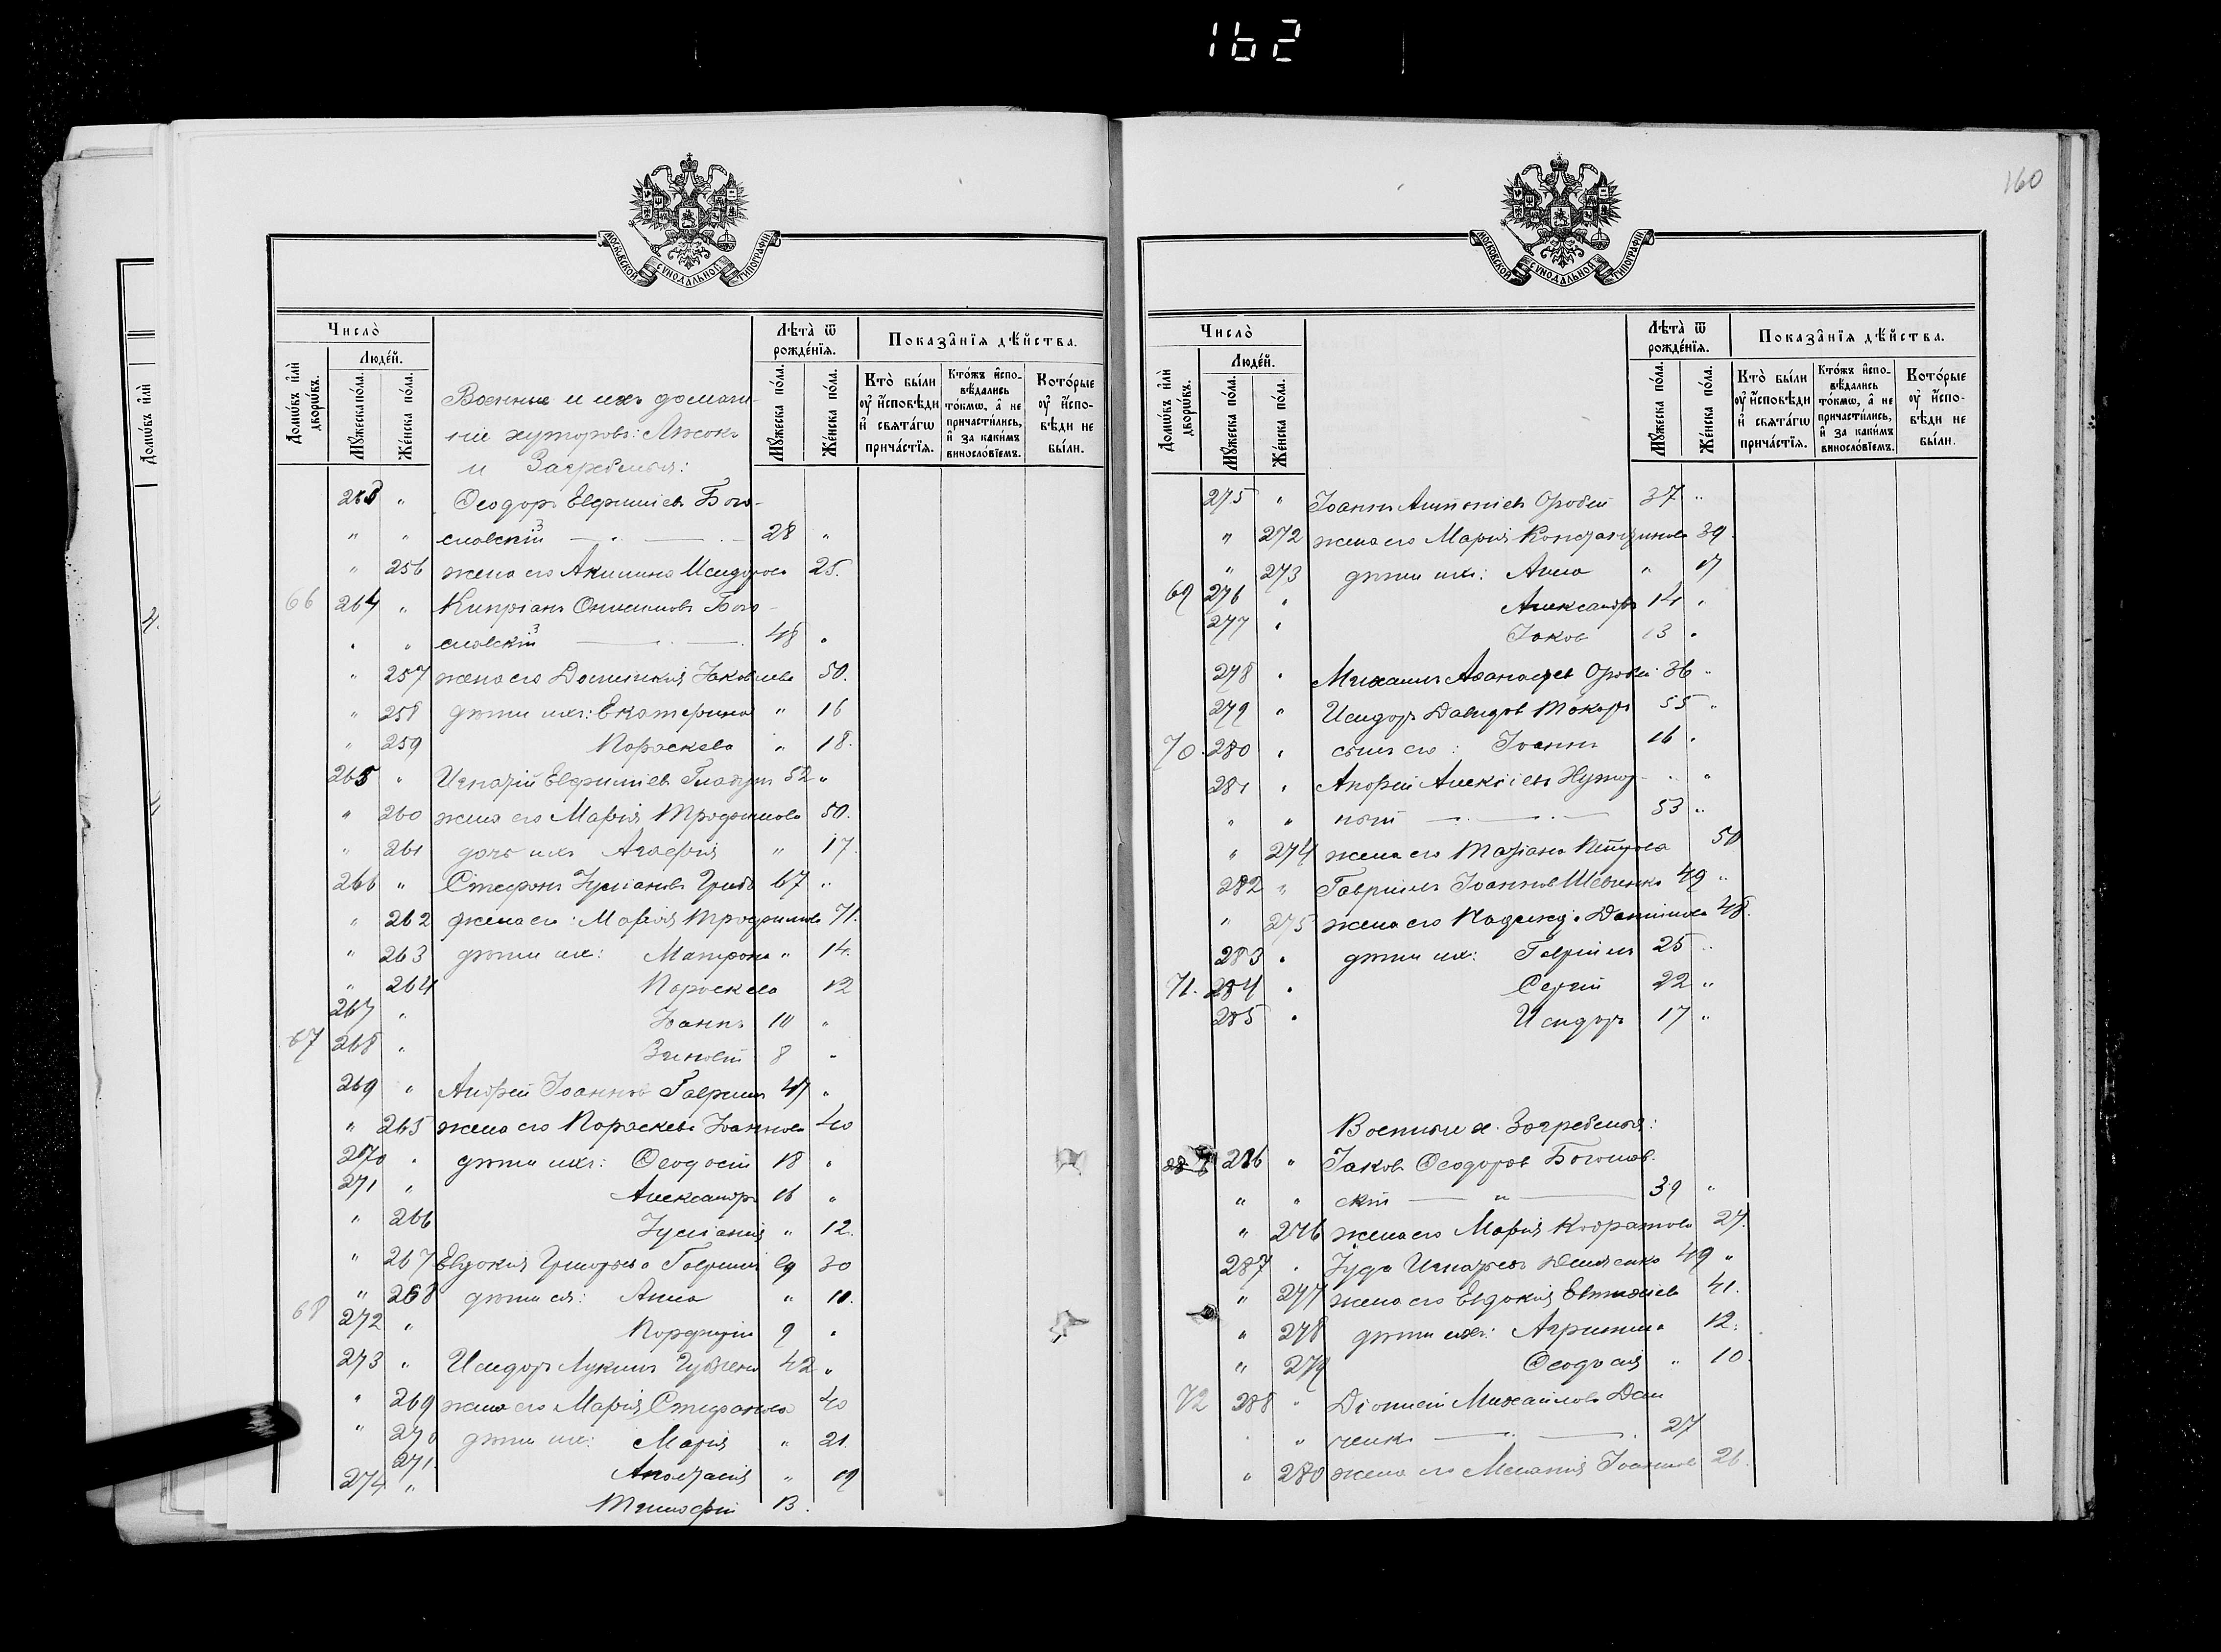 162
160
МОСКОВСКОЙ СѴНОДАЛЬНОЙ ТИПОГРАФІИ
Число̀
Людей.
Домѡвъ и҆лѝ дворѡвъ.
Мꙋжеска по́ла.
Же́нска по́ла.
Военные и ихъ домаш-
ніе хуторовъ:
и Загребелья:
Лѣта̀ ѿ рожде́нїѧ.
Мꙋжеска по́ла.
Же́нска по́ла.
Показа̂нїѧ дѣ́йства.
Кто̀ бы́ли оу҆ и҆сповѣди и҆ свѧта́гѡ прича́стїѧ.
Кто́жъ и҆спо-вѣдались то́кмѡ, а҆ не причасти́лись, и҆ за каки́мъ винослові́емъ.
Кото́рые оу҆ и҆спо-вѣди не бы́ли.
263 " Ѳеодоръ Евфиміевъ Бого-
" " словскій 28 "
" 256 жена его Акилина Исидорова 25.
66 264 " Кипріанъ Онисимовъ Бого-
" " словскій 48 "
" 257 жена его Домникія Іаковлева 50.
" 258 дѣти ихъ: Екатерина " 16
" 259 Параскева " 18.
265 " Игнатій Евфиміевъ 52 "
" 260 жена его Марія Трофимова 50.
" 261 дочь ихъ Агафія " 17.
266 " Стефанъ Іуліановъ 67 "
" 262 жена его: Марія Трофимова 71.
" 263 дѣти ихъ: Матрона " 14.
" 264 Параскева 12
267 " Іоаннъ 10 "
67 268 " Зиновій 8 "
269 " Андрей Іоанновъ Гавриш 47 "
" 265 жена его Параскева Іоаннова 40
270 " дѣти ихъ: Ѳеодосій 18 "
271 " Александръ 16 "
" 266 Іуліанія " 12.
" 267 Евдокія Григорьева 30
68 " 268 дѣти ея: Анна " 11.
272 " Порфирій 9 "
273 " Исидоръ Лукинъ 42 "
" 269 жена его Марія Стефанова 40
" 270 дѣти ихъ: Марія " 21.
271. Анастасія " 19
274 " Тимофей 13.
МОСКОВСКОЙ СѴНОДАЛЬНОЙ ТИПОГРАФІИ
Число̀
Людей.
Домѡвъ и҆лѝ дворѡвъ.
Мꙋжеска по́ла.
Же́нска по́ла.
Лѣта̀ ѿ рожде́нїѧ.
Мꙋжеска по́ла.
Же́нска по́ла.
Показа̂нїѧ дѣ́йства.
Кто̀ бы́ли оу҆ и҆сповѣди и҆ свѧта́гѡ прича́стїѧ.
Кто́жъ и҆спо-вѣдались то́кмѡ, а҆ не причасти́лись, и҆ за каки́мъ винослові́емъ.
Кото́рые оу҆ и҆спо-вѣди не бы́ли.
275 " Іоаннъ Антоніевъ Оробей 37 "
" 272 жена его Марія Константинова 39.
" 273 дѣти ихъ: Анна " 17
69 276 " Александръ 14 "
277 " Іаковъ 13 "
278 " Михаилъ Аѳанасьевъ Оробей 36 "
279 " Исидоръ Давидовъ Токарь 55 "
70. 280 " сынъ его: Іоаннъ 16 "
281 " Андрей Алексіевъ " "
" " ной 53 "
" 274 жена его Татіана Петрова 50
282 " Гавріилъ Іоанновъ Шевченко 49 "
" 275 жена его Надежда Даніилова 48.
283 " дѣти ихъ: Гавріилъ 25 "
71. 284 " Сергій 22 "
285 " Исидоръ 17 "
Военные х. Загребелья:
286 " Іаковъ Ѳеодоровъ Богослов-
" " скій 39 "
" 276 жена его Марія Кодратова 27.
287 " Іуда Игнатьевъ 49 "
" 277 жена его Евдокія Евтихіева 41.
" 278 дѣти ихъ: Агрипина 12.
" 279 Ѳеодосія " 10.
72 288 " Діонисій Михайловъ Дем
" ченко 27
" 280 жена его Меланія Іоаннова 26.